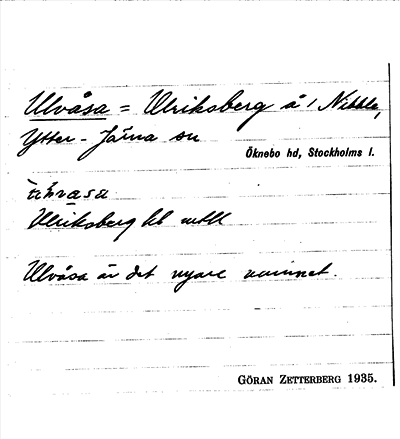 Ulvåsa = Ulriksberg å 1 Nibble,
Ytter-Järna sn
Öknebo hd, Stockholms l.
Ulriksberg hl mtl
Ulvåsa är det nyare namnet.
GÖRAN ZETTERBERG 1935.